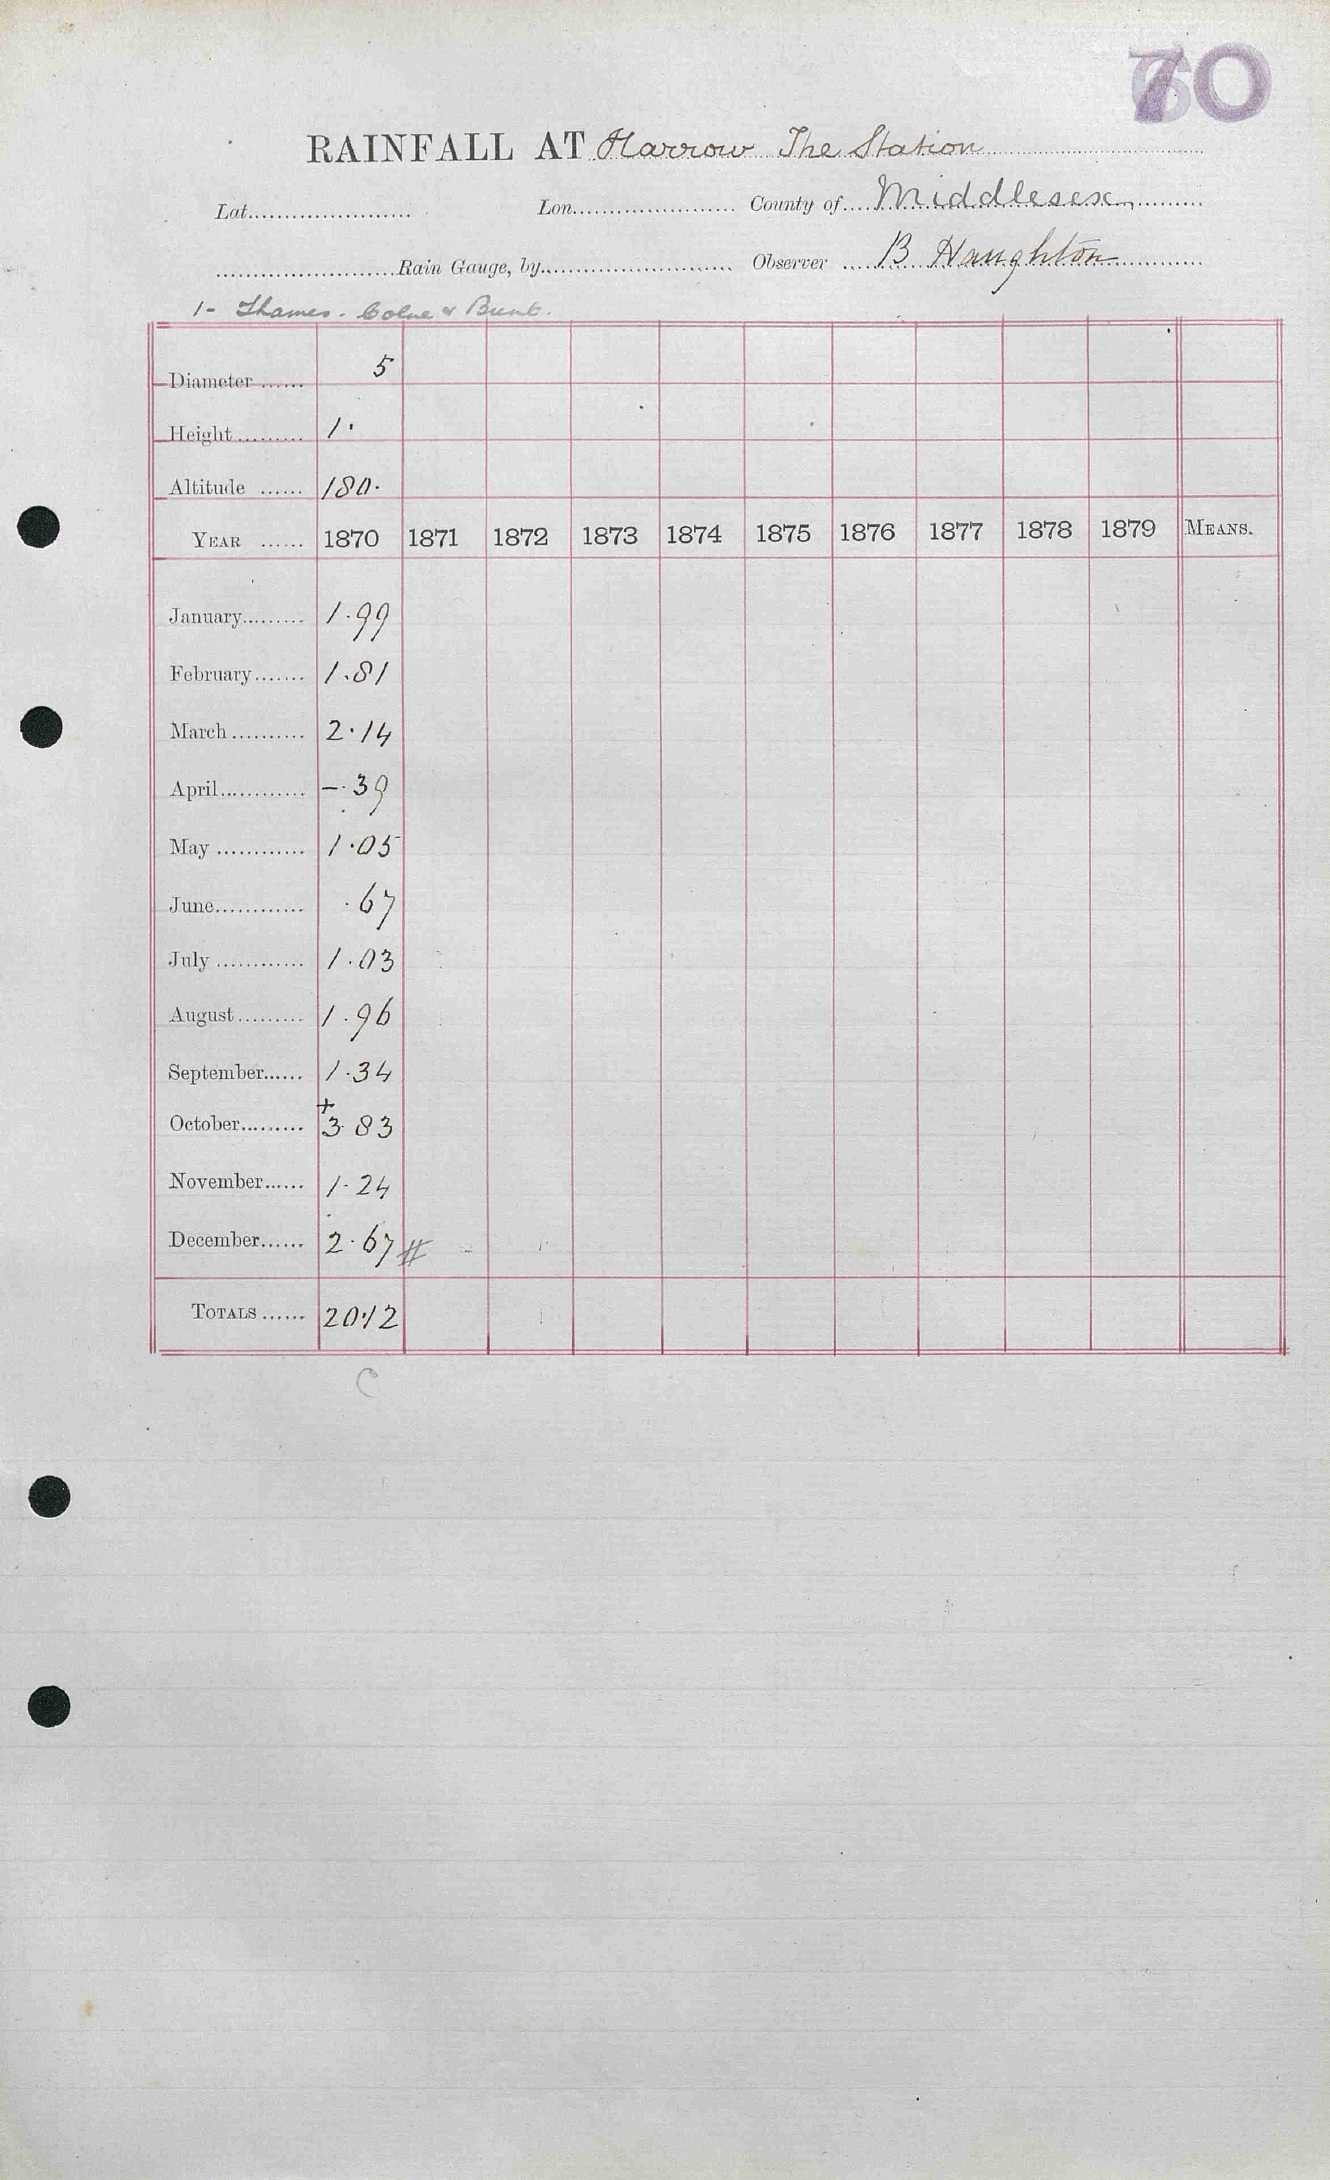 70
RAINFALL AT Harrow The Station
Lat...................... Lon...................... County of.... Middlesex
........................Rain Gauge, by.......................... Observer .... B Haughton
1- Thames. Colne & Brent.
Diameter ...... 5
Height......... 1·
Altitude ...... 180·
YEAR ...... 1870 1871 1872 1873 1874 1875 1876 1877 1878 1879 MEANS.
January......... 1·99
February....... 1·81
March.......... 2·14
April............ –·39
May ............ 1·05
June............ ·67
July ............ 1·03
August......... 1·96
September...... 1·34
+
October......... 3·83
November...... 1·24
December...... 2·67 #
TOTALS ...... 20·12
C